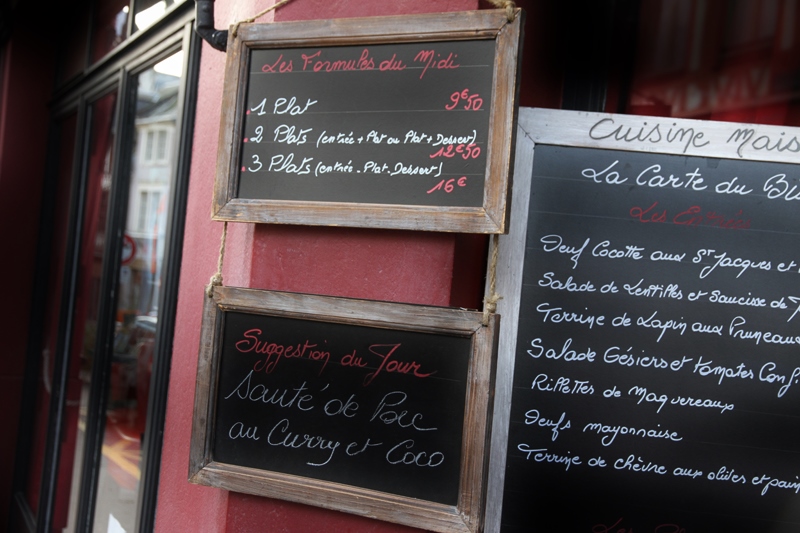 Les Formules du Midi
1 Plat 9€50
2 Plats (entrée + Plat ou Plat + Dessert)
12€50
3 Plats (entrée - Plat - Dessert)
16€
Suggestion du Jour
Sauté de Porc
au Curry et Coco
Cuisine Mais
La Carte du Bi
Les Entrées
Oeuf Cocotte aux St Jacques et
Salade de Lentilles et Saucisse de
Terrine de Lapin aux Pruneaux
Salade Gésiers et tomates Conf
Rillettes de Maquereaux
Oeufs mayonnaise
Terrine de chèvre aux olives et pain
Les